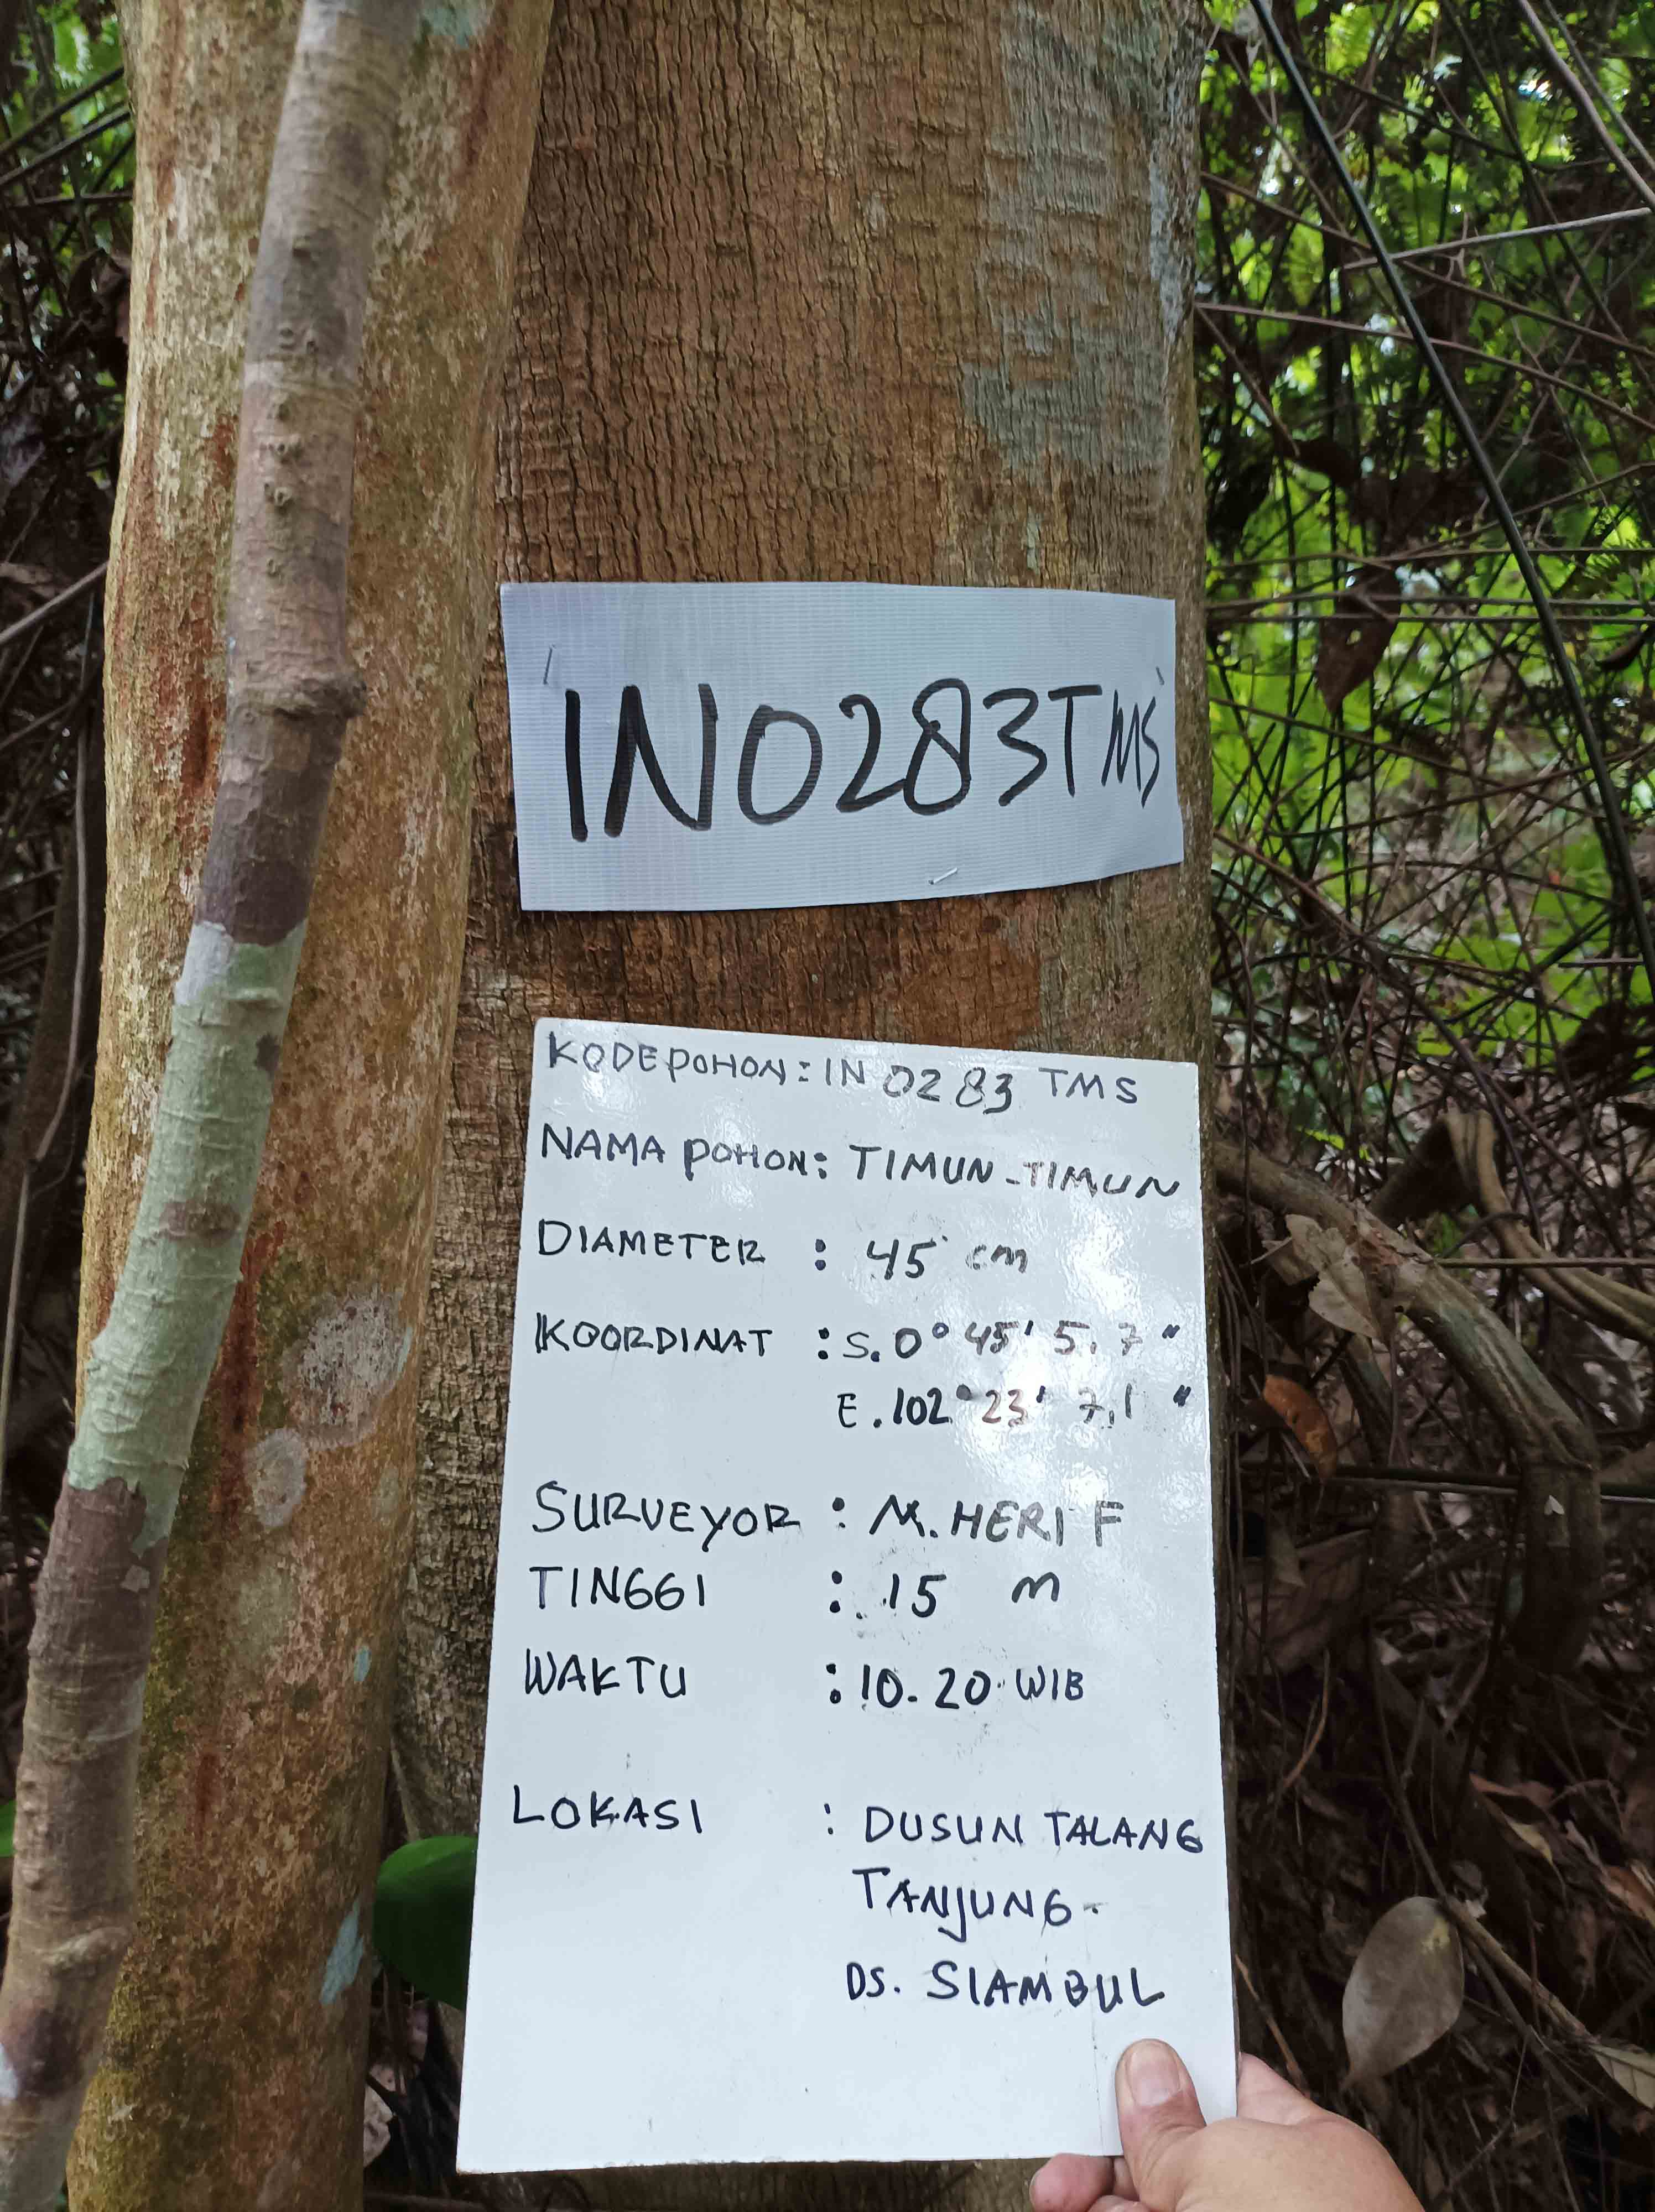 IN0283TMS
KODE POHON : IN 0283 TMS
NAMA POHON : TIMUN-TIMUN
DIAMETER : 45 cm
KOORDINAT : S. 0° 45' 5.7"
E. 102° 23' 7,1"
SURVEYOR : M. HERI F
TINGGI : 15 m
WAKTU : 10.20 WIB
LOKASI : DUSUN TALANG
TANJUNG.
DS. SIAMBUL